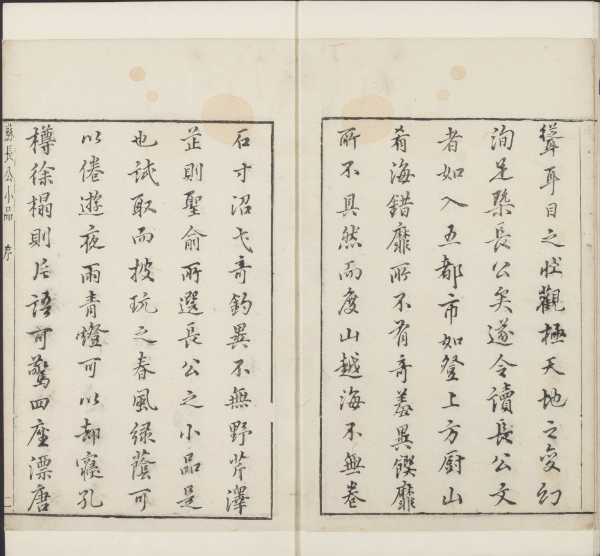 聳耳目之壯觀極天地之變幻
洵足槩長公矣遂令讀長公文
者如入五都市如登上方厨山
肴海錯靡所不有奇羞異饌靡
所不具然而度山越海不無卷
石寸沼弋奇釣異不無野芹澤
芷則聖俞所選長公之小品是
也試取而披玩之春風綠蔭可
以倦遊夜雨青燈可以却寢孔
樽徐榻則片語可驚四座漂唐
蘇長公小品
序
二